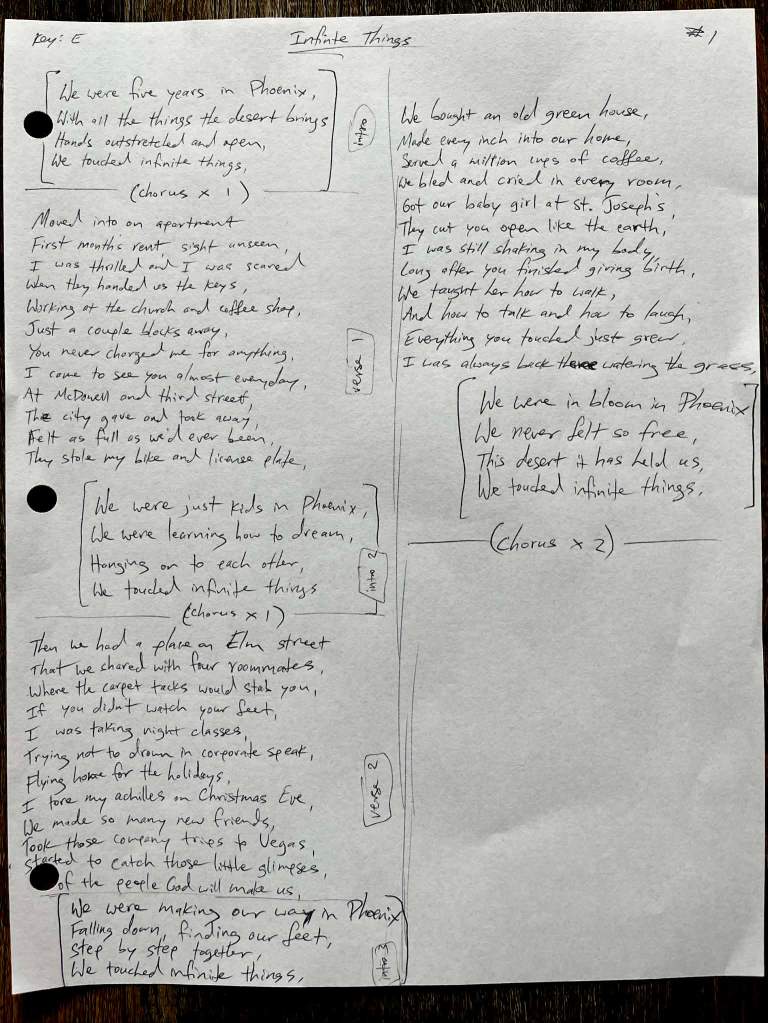 Key: E
Infinite Things
#1
We were five years in Phoenix,
With all the things the desert brings
Hands outstretched and open,
We touched infinite things,
intro
(chorus x 1)
Moved into an apartment
First months rent, sight unseen,
I was thrilled and I was scared
When they handed us the keys,
Working at the church and coffee shop,
Just a couple blocks away,
You never charged me for anything,
I came to see you almost everyday,
At McDowell and third street,
The city gave and took away,
Felt as full as we'd ever been,
They stole my bike and license plate,
verse 1
We were just kids in Phoenix,
We were learning how to dream,
Hanging on to each other,
We touched infinite things
intro 2
(chorus x 1)
Then we had a place on Elm street
That we shared with four roommates,
Where the carpet tacks would stab you,
If you didn't watch your feet,
I was taking night classes,
Trying not to drown in corporate speak,
Flying home for the holidays,
I tore my achilles on Christmas Eve,
We made so many new friends,
Took those company trips to Vegas,
Started to catch those little glimpses,
of the people God will make us,
verse 2
We were making our way in Phoenix
Falling down, finding our feet,
Step by step together,
We touched infinite things,
intro 3
We bought an old green house,
Made every inch into our home,
Served a million cups of coffee,
We bled and cried in every room,
Got our baby girl at St. Joseph's,
They cut you open like the earth,
I was still shaking in my body,
Long after you finished giving birth,
We taught her how to walk,
And how to talk and how to laugh,
Everything you touched just grew,
I was always back there watering the grass,
We were in bloom in Phoenix
We never felt so free,
This desert it has held us,
We touched infinite things,
(chorus x 2)